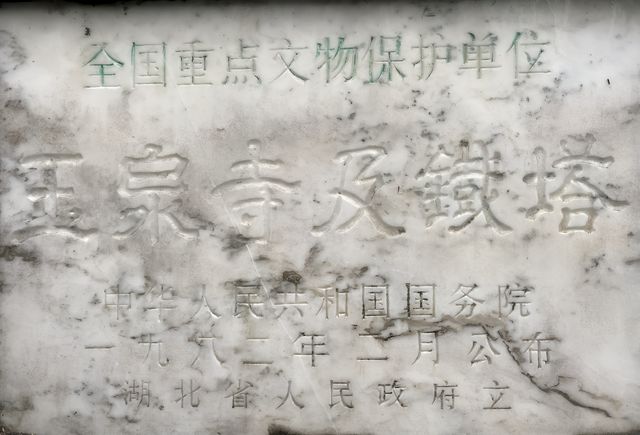 全国重点文物保护单位
玉泉寺及鐵塔
中华人民共和国国务院
一九八二年二月公布
湖北省人民政府立